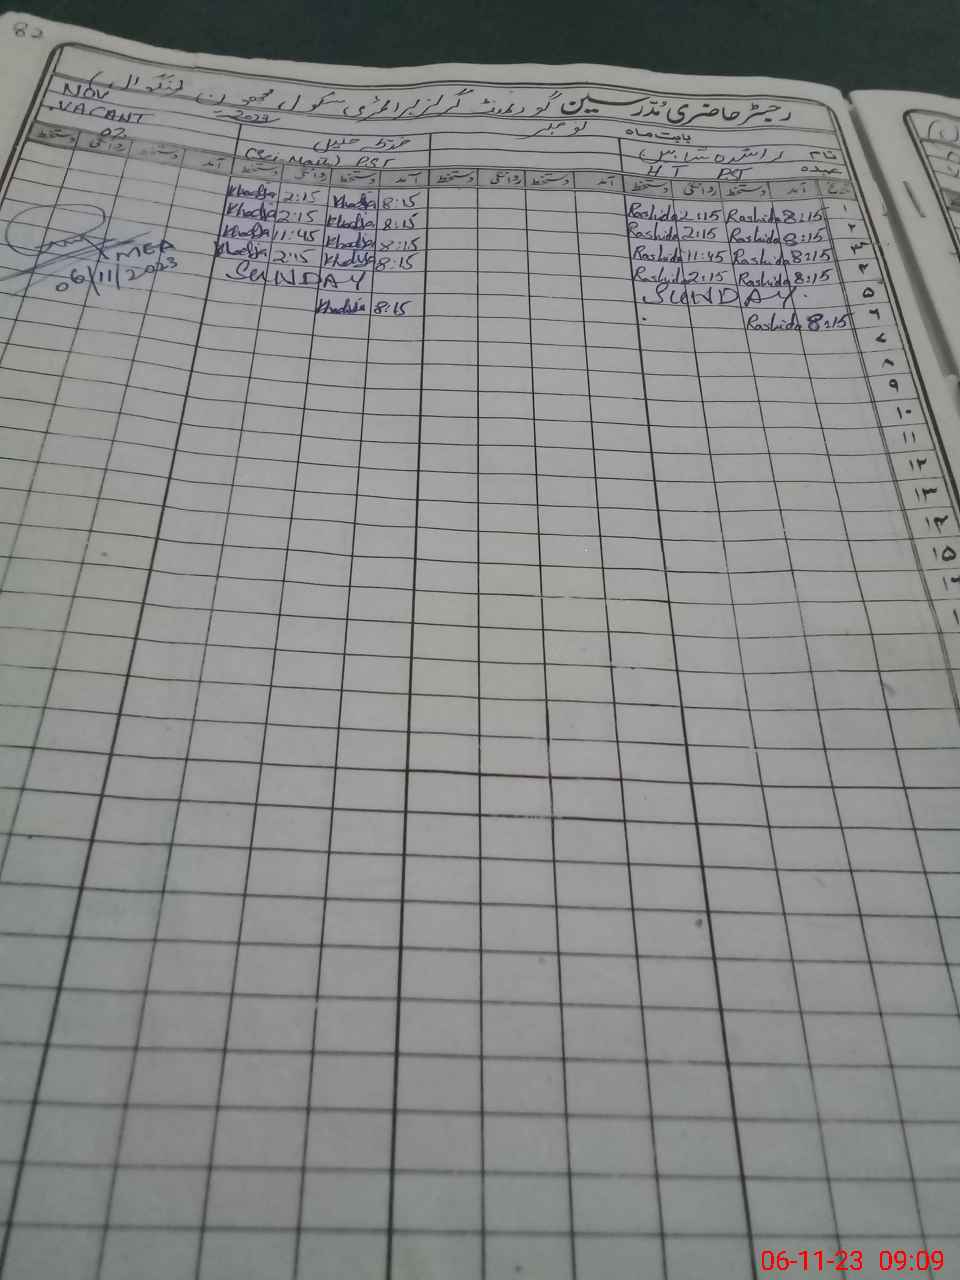 82
رجسٹر حاضری مُدرسین گورنمنٹ گرلز پرائمری سکول
NOV 2023 بابت ماہ نومبر
VACANT
02
نام راشدہ
عہدہ H T PST
PST
تاریخ آمد دستخط روانگی دستخط آمد دستخط روانگی دستخط آمد دستخط روانگی دستخط آمد دستخط روانگی دستخط
۱ 8:15 Rashida 2:15 Rashida 8:15 Khadija 2:15 Khadija
۲ 8:15 Rashida 2:15 Rashida 8:15 Khadija 2:15 Khadija
۳ 8:15 Rashida 11:45 Rashida 8:15 Khadija 11:45 Khadija
۴ 8:15 Rashida 2:15 Rashida 8:15 Khadija 2:15 Khadija
۵ SUNDAY SUNDAY
۶ 8:15 Rashida 8:15 Khadija
MEA
06/11/2023
۷
۸
۹
۱۰
۱۱
۱۲
۱۳
۱۴
۱۵
06-11-23 09:09